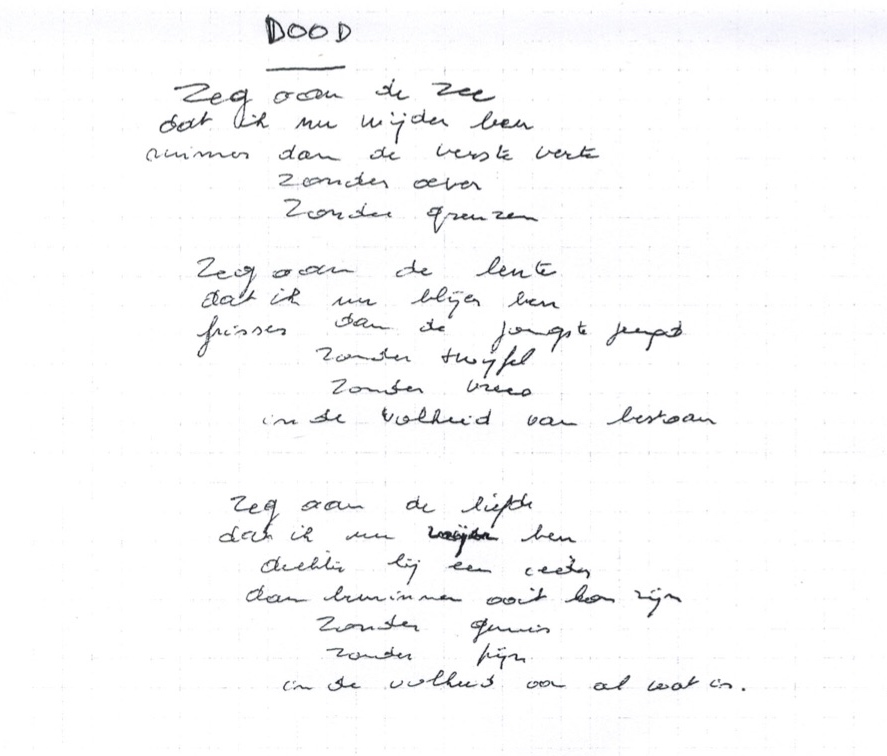 DOOD
Zeg aan de zee
dat ik nu wijder ben
ruimer dan de verste verte
zonder oever
zonder grenzen
Zeg aan de lente
dat ik nu blijer ben
frisser dan de jongste jeugd
zonder twijfel
zonder vrees
in de volheid van bestaan
Zeg aan de liefde
dat ik nu ben
dichter bij een ieder
dan beminnen ooit kon zijn
zonder gemis
zonder pijn
in de volheid van al wat is.